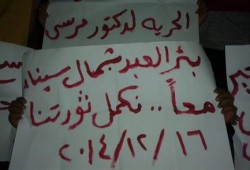 الحرية لدكتور مرسى
بئر العبد شمال سيناء
معاً .. نكمل ثورتنا
٢٠١٤/١٢/١٦